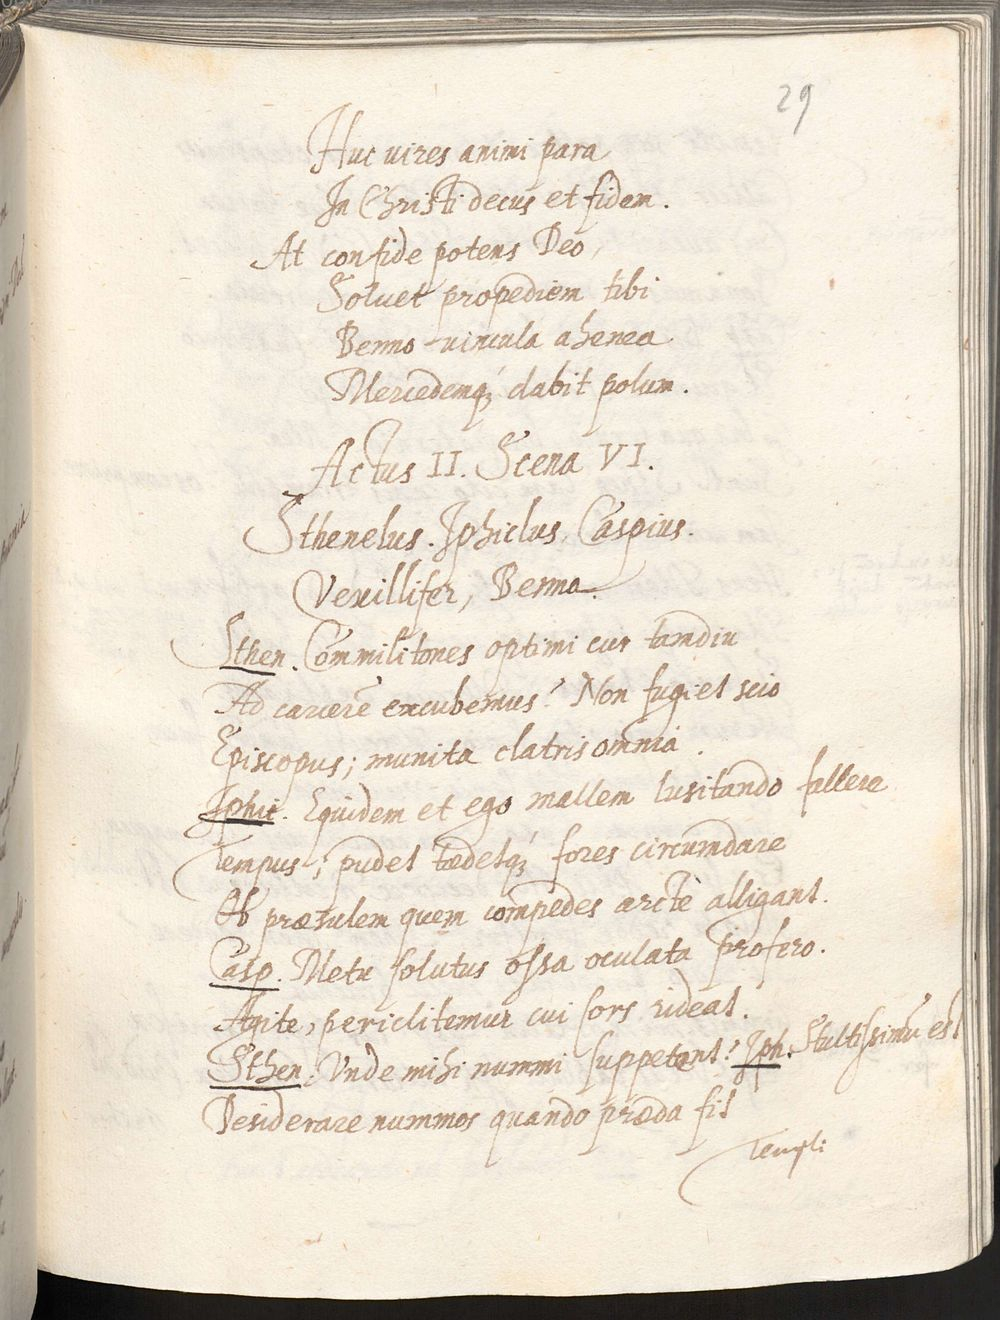 29
Huc uires animi para
In Christi decus et fidem.
At confide potens Deo,
Soluet propediem tibi
Benno uincula ahenea
Mercedemq; dabit polum.
Actus II. Scena VI.
Sthenelus. Iphiclus, Caspius.
Vexillifer, Benno.
Sthen. Commilitones optimi cur tamdiu
Ad carcerē excubemus? Non fugiet scio
Episcopus; munita clatris omnia.
Iphic. Equidem et ego mallem lusitando fallere
Tempus; pudet tædetq; fores circumdare
Ob præsulem quem compedes arctè alligant.
Casp. Metu solutus ossa oculata profero.
Agite, periclitemur cui sors rideat.
Sthen. Vnde mihi nummi suppetent? Iph. Stultissimū est
Desiderare nummos quando præda sit
Templi